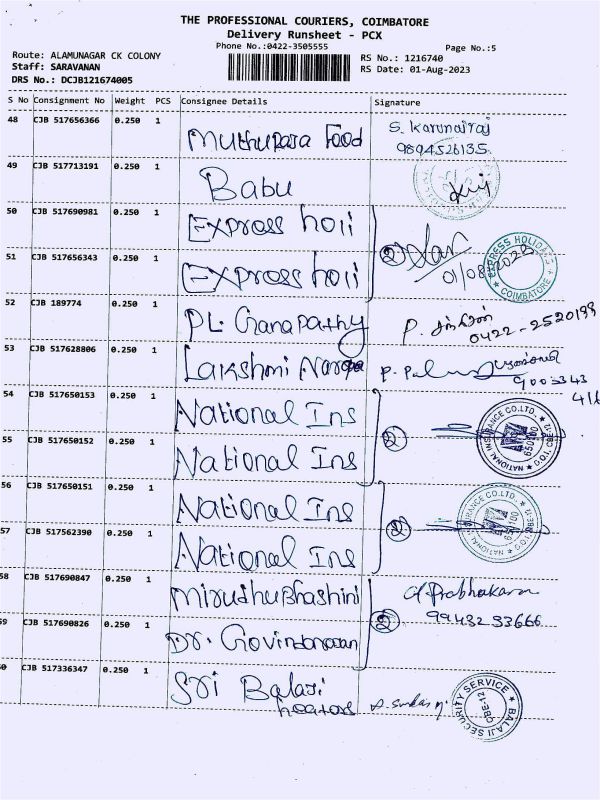 THE PROFESSIONAL COURIERS, COIMBATORE
Delivery Runsheet - PCX
Phone No.:0422-3505555
Page No.:5
Route: ALAMUNAGAR CK COLONY
RS No.: 1216740
Staff: SARAVANAN
RS Date: 01-Aug-2023
DRS No.: DCJB121674005
S No Consignment No Weight PCS Consignee Details Signature
48 CJB 517656366 0.250 1
Muthupara Food
S. Karunairaj
9894526135
49 CJB 517713191 0.250 1
Babu
50 CJB 517690981 0.250 1
Express holi
51 CJB 517656343 0.250 1
Express holi
2
01/08/2023
EXPRESS HOLIDAYS
COIMBATORE
52 CJB 189774 0.250 1
PL. Ganapathy
P.
0422-2520199
53 CJB 517628806 0.250 1
Lakshmi
P.
9003343
416
54 CJB 517650153 0.250 1
National Ins
55 CJB 517650152 0.250 1
National Ins
2
NATIONAL INSURANCE CO.LTD.
650100
56 CJB 517650151 0.250 1
National Ins
57 CJB 517562390 0.250 1
National Ins
2
NATIONAL INSURANCE CO.LTD.
650100
58 CJB 517690847 0.250 1
Mirudhubhashini
59 CJB 517690826 0.250 1
Dr. Govindarajan
2
Prabhakaran
99432 33666
60 CJB 517336347 0.250 1
Sri Balaji
heaters
BALAJI SECURITY SERVICE
CBE-12